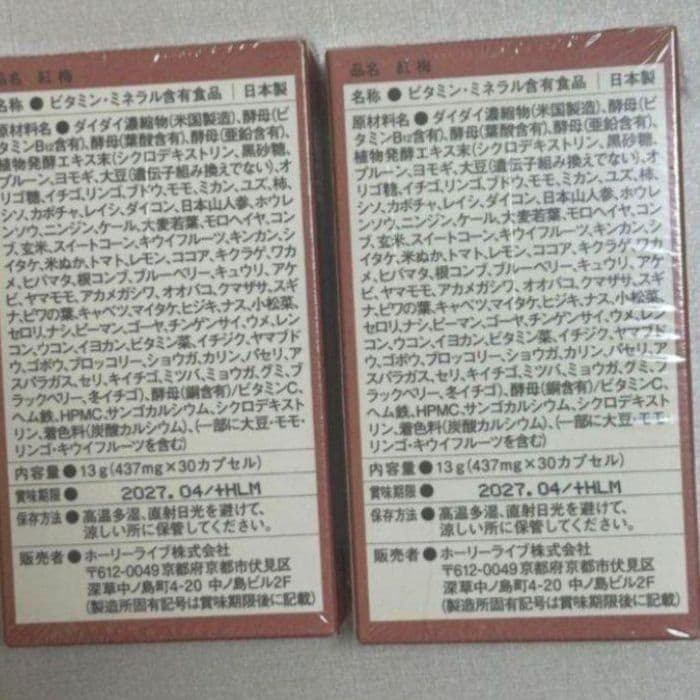 品名 紅梅
名称 ● ビタミン・ミネラル含有食品 | 日本製
原材料名 ● ダイダイ濃縮物(米国製造)、酵母(ビ
タミンB12含有)、酵母(葉酸含有)、酵母(亜鉛含有)、
植物発酵エキス末(シクロデキストリン、黒砂糖、
プルーン、ヨモギ、大豆(遺伝子組み換えでない)、オ
リゴ糖、イチゴ、リンゴ、ブドウ、モモ、ミカン、ユズ、柿、
シソ、カボチャ、レイシ、ダイコン、日本山人参、ホウレ
ンソウ、ニンジン、ケール、大麦若葉、モロヘイヤ、コン
ブ、玄米、スイートコーン、キウイフルーツ、キンカン、シ
イタケ、米ぬか、トマト、レモン、ココア、キクラゲ、ワカ
メ、ヒバマタ、根コンブ、ブルーベリー、キュウリ、アケ
ビ、ヤマモモ、アカメガシワ、オオバコ、クマザサ、スギ
ナ、ビワの葉、キャベツ、マイタケ、ヒジキ、ナス、小松菜、
セロリ、ナシ、ピーマン、ゴーヤ、チンゲンサイ、ウメ、レン
コン、ウコン、イヨカン、ビタミン菜、イチジク、ヤマブド
ウ、ゴボウ、ブロッコリー、ショウガ、カリン、パセリ、ア
スパラガス、セリ、キイチゴ、ミツバ、ミョウガ、グミ、ブ
ラックベリー、冬イチゴ)、酵母(銅含有)/ビタミンC、
ヘム鉄、HPMC、サンゴカルシウム、シクロデキスト
リン、着色料(炭酸カルシウム)、(一部に大豆・モモ・
リンゴ・キウイフルーツを含む)
内容量 ● 13g(437mg×30カプセル)
賞味期限 ● 2027.04/+HLM
保存方法 ● 高温多湿、直射日光を避けて、
涼しい所に保管してください。
販売者 ● ホーリーライブ株式会社
〒612-0049 京都府京都市伏見区
深草中ノ島町4-20 中ノ島ビル2F
(製造所固有記号は賞味期限後に記載)
品名 紅梅
名称 ● ビタミン・ミネラル含有食品 | 日本製
原材料名 ● ダイダイ濃縮物(米国製造)、酵母(ビ
タミンB12含有)、酵母(葉酸含有)、酵母(亜鉛含有)、
植物発酵エキス末(シクロデキストリン、黒砂糖、
プルーン、ヨモギ、大豆(遺伝子組み換えでない)、オ
リゴ糖、イチゴ、リンゴ、ブドウ、モモ、ミカン、ユズ、柿、
シソ、カボチャ、レイシ、ダイコン、日本山人参、ホウレ
ンソウ、ニンジン、ケール、大麦若葉、モロヘイヤ、コン
ブ、玄米、スイートコーン、キウイフルーツ、キンカン、シ
イタケ、米ぬか、トマト、レモン、ココア、キクラゲ、ワカ
メ、ヒバマタ、根コンブ、ブルーベリー、キュウリ、アケ
ビ、ヤマモモ、アカメガシワ、オオバコ、クマザサ、スギ
ナ、ビワの葉、キャベツ、マイタケ、ヒジキ、ナス、小松菜、
セロリ、ナシ、ピーマン、ゴーヤ、チンゲンサイ、ウメ、レン
コン、ウコン、イヨカン、ビタミン菜、イチジク、ヤマブド
ウ、ゴボウ、ブロッコリー、ショウガ、カリン、パセリ、ア
スパラガス、セリ、キイチゴ、ミツバ、ミョウガ、グミ、ブ
ラックベリー、冬イチゴ)、酵母(銅含有)/ビタミンC、
ヘム鉄、HPMC、サンゴカルシウム、シクロデキスト
リン、着色料(炭酸カルシウム)、(一部に大豆・モモ・
リンゴ・キウイフルーツを含む)
内容量 ● 13g(437mg×30カプセル)
賞味期限 ● 2027.04/+HLM
保存方法 ● 高温多湿、直射日光を避けて、
涼しい所に保管してください。
販売者 ● ホーリーライブ株式会社
〒612-0049 京都府京都市伏見区
深草中ノ島町4-20 中ノ島ビル2F
(製造所固有記号は賞味期限後に記載)